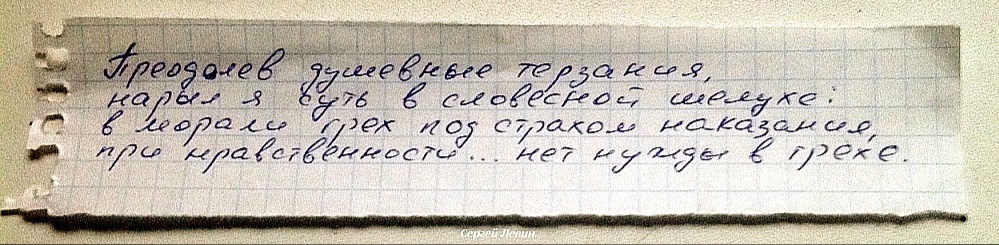 Преодолев душевные терзания,
нарыл я суть в словесной шелухе:
в морали грех под страхом наказания,
при нравственности... нет нужды в грехе.
Сергей Левин